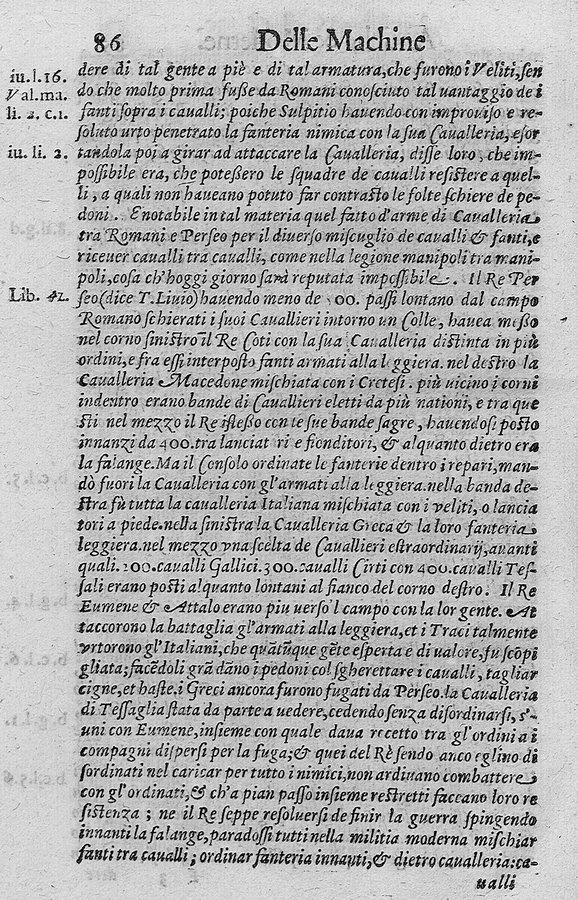 86 Delle Machine
iu. l. 16.
Val. ma.
li. 2. c. 1.
iu. li. 2.
Lib. 42.
dere di tal gente a piè e di tal armatura, che furono i Veliti, sen
do che molto prima fuße da Romani conosciuto tal vantaggio de i
fanti sopra i cavalli; poiche Sulpitio hauendo con improuiso e re-
soluto urto penetrato la fanteria nimica con la sua Caualleria, esor
tandola poi a girar ad attaccare la Caualleria, disse loro, che im-
possibile era, che poteßero le squadre de caualli resistere a quel-
li, a quali non haueano potuto far contrasto le folte schiere de pe-
doni. E notabile in tal materia quel fatto d'arme di Caualleria
tra Romani e Perseo per il diuerso miscuglio de caualli & fanti, e
riceuer caualli tra caualli, come nella legione manipoli tra mani-
poli, cosa ch'hoggi giorno sarà reputata impossibile. Il Re Per
seo (dice T. Liuio) hauendo meno de 500. passi lontano dal campo
Romano schierati i suoi Cauallieri intorno un Colle, hauea meßo
nel corno sinistro il Re Coti con la sua Caualleria distinta in più
ordini, e fra essi interposto fanti armati alla leggiera. nel destro la
Caualleria Macedone mischiata con i Cretesi. più uicino i corni
indentro erano bande di Cauallieri eletti da più nationi, e tra que
sti nel mezzo il Re istesso con le sue bande sagre, hauendosi posto
innanzi da 400. tra lanciat ri e fionditori, & alquanto dietro era
la falange. Ma il Consolo ordinate le fanterie dentro i repari, man-
dò fuori la Caualleria con gl'armati alla leggiera. nella banda de-
stra fù tutta la caualleria Italiana mischiata con i veliti, o lancia
tori a piede. nella sinistra la Caualleria Greca & la loro fanteria
leggiera. nel mezzo vna scelta de Cauallieri estraordinarij, auanti
quali. 200. caualli Gallici. 300. caualli Cirti con 400. caualli Tes-
sali erano posti alquanto lontani al fianco del corno destro. Il Re
Eumene & Attalo erano piu uerso'l campo con la lor gente. At
taccorono la battaglia gl'armati alla leggiera, et i Traci talmente
vrtorono gl'Italiani, che quatūque gēte esperta e di ualore, fu scōpi
gliata; facēdoli grā dāno i pedoni col sgherettare i caualli, tagliar
cigne, et haste. i Greci ancora furono fugati da Perseo. la Caualleria
di Tessaglia stata da parte a uedere, cedendo senza disordinarsi, s'-
uni con Eumene, insieme con quale daua recetto tra gl'ordini a i
compagni dispersi per la fuga; & quei del Rè sendo anco eglino di
sordinati nel caricar per tutto i nimici, non ardiuano combattere
con gl'ordinati, & ch'a pian passo insieme restretti faceano loro re
sistenza; ne il Re seppe resoluersi de finir la guerra spingendo
innanti la falange, paradossi tutti nella militia moderna mischiar
fanti tra caualli; ordinar fanteria innanti, & dietro caualleria: ca-
ualli